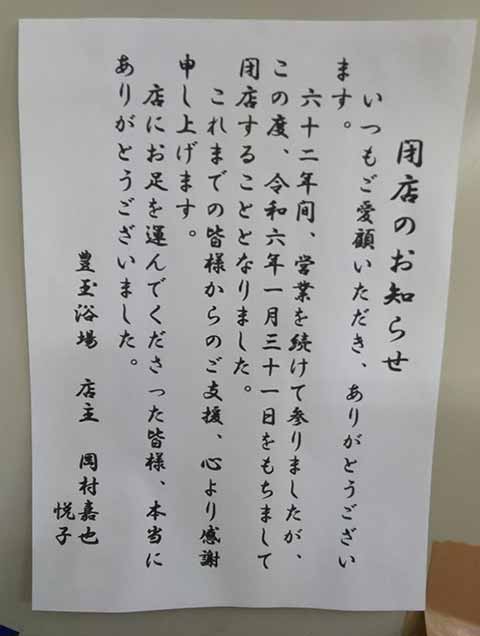 閉店のお知らせ
いつもご愛顧いただき、ありがとうござい
ます。
六十二年間、営業を続けて参りましたが、
この度、令和六年一月三十一日をもちまして
閉店することとなりました。
これまでの皆様からのご支援、心より感謝
申し上げます。
店にお足を運んでくださった皆様、本当に
ありがとうございました。
豊玉浴場 店主 岡村嘉也
悦子